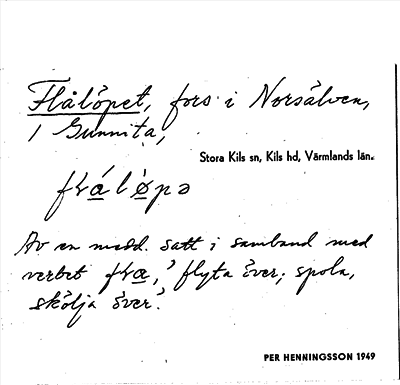 Flålöpet, fors i Norsälven,
1 Gunnita,
Stora Kils sn, Kils hd, Värmlands län.
flåləpə
Av en medd. satt i samband med
verbet flå, ’flyta över; spola,
skölja över’.
PER HENNINGSSON 1949